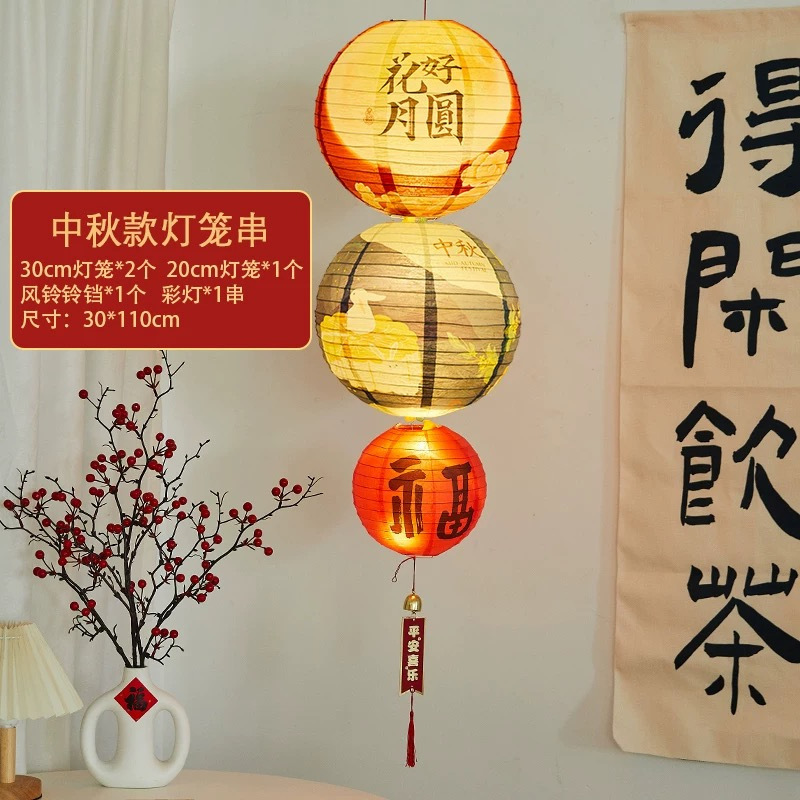 中秋款灯笼串
30cm灯笼*2个 20cm灯笼*1个
风铃铃铛*1个 彩灯*1串
尺寸：30*110cm
花好
月圓
中秋
MID AUTUMN
FESTIVAL
福
平安喜乐
福
得閑飲茶